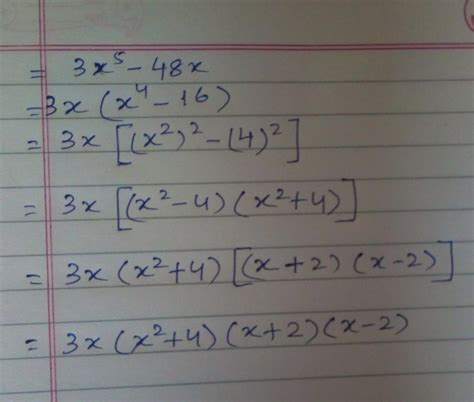 = 3x⁵ - 48x
= 3x (x⁴ - 16)
= 3x [(x²)² - (4)²]
= 3x [(x² - 4) (x² + 4)]
= 3x (x² + 4) [(x + 2) (x - 2)]
= 3x (x² + 4) (x + 2) (x - 2)